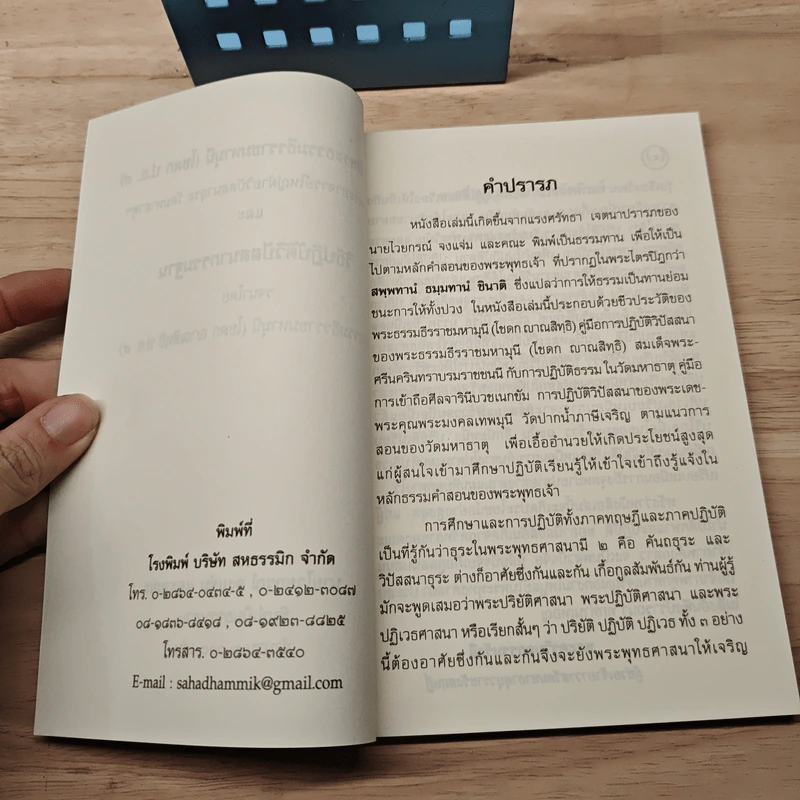 พิมพ์ที่
โรงพิมพ์ บริษัท สหธรรมิก จำกัด
โทร. ๐-๒๘๖๔-๐๔๓๔-๕ , ๐-๒๔๑๒-๓๐๘๗
๐๘-๑๘๓๖-๘๔๑๘ , ๐๘-๑๙๒๓-๘๘๒๕
โทรสาร. ๐-๒๘๖๔-๓๕๔๐
E-mail : sahadhammik@gmail.com
คำปรารภ
หนังสือเล่มนี้เกิดขึ้นจากแรงศรัทธา เจตนาปรารภของ
นายไวยกรณ์ จงแจ่ม และคณะ พิมพ์เป็นธรรมทาน เพื่อให้เป็น
ไปตามหลักคำสอนของพระพุทธเจ้า ที่ปรากฏในพระไตรปิฎกว่า
สพฺพทานํ ธมฺมทานํ ชินาติ ซึ่งแปลว่าการให้ธรรมเป็นทานย่อม
ชนะการให้ทั้งปวง ในหนังสือเล่มนี้ประกอบด้วยชีวประวัติของ
พระธรรมธีรราชมหามุนี (โชดก ญาณสิทฺธิ) คู่มือการปฏิบัติวิปัสสนา
ของพระธรรมธีรราชมหามุนี (โชดก ญาณสิทฺธิ) สมเด็จพระ-
ศรีนครินทราบรมราชชนนี กับการปฏิบัติธรรมในวัดมหาธาตุ คู่มือ
การเข้าถือศีลจาริณีบวชเนกขัม การปฏิบัติวิปัสสนาของพระเดช-
พระคุณพระมงคลเทพมุนี วัดปากน้ำภาษีเจริญ ตามแนวการ
สอนของวัดมหาธาตุ เพื่อเอื้ออำนวยให้เกิดประโยชน์สูงสุด
แก่ผู้สนใจเข้ามาศึกษาปฏิบัติเรียนรู้ให้เข้าใจเข้าถึงรู้แจ้งใน
หลักธรรมคำสอนของพระพุทธเจ้า
การศึกษาและการปฏิบัติทั้งภาคทฤษฎีและภาคปฏิบัติ
เป็นที่รู้กันว่าธุระในพระพุทธศาสนามี ๒ คือ คันถธุระ และ
วิปัสสนาธุระ ต่างก็อาศัยซึ่งกันและกัน เกื้อกูลสัมพันธ์กัน ท่านผู้รู้
มักจะพูดเสมอว่าพระปริยัติศาสนา พระปฏิบัติศาสนา และพระ
ปฏิเวธศาสนา หรือเรียกสั้นๆ ว่า ปริยัติ ปฏิบัติ ปฏิเวธ ทั้ง ๓ อย่าง
นี้ต้องอาศัยซึ่งกันและกันจึงจะยังพระพุทธศาสนาให้เจริญ